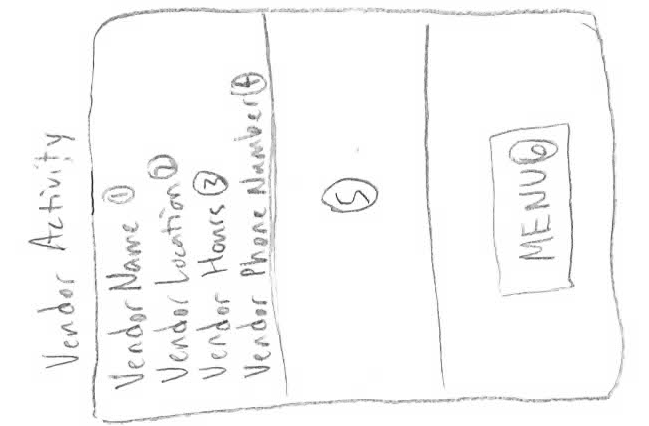 Vendor Activity
Vendor Name ①
Vendor Location ②
Vendor Hours ③
Vendor Phone Number ④
⑤
MENU ⑥